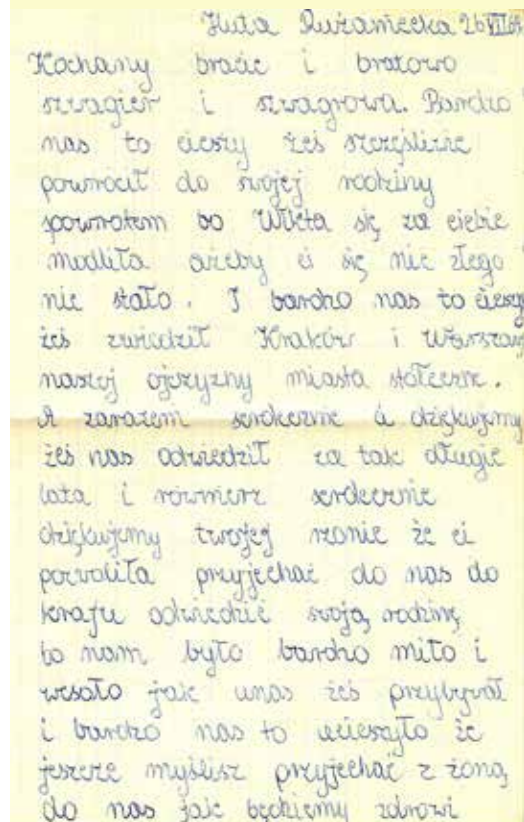 Huta Różaniecka 26 VII
Kochany bracie i bratowo
szwagier i szwagrowa. Bardzo
nas to cieszy żeś szczęśliwie
powrócił do swojej rodziny
spowrotem bo Wikta się za ciebie
modliła ażeby ci się nic złego
nie stało. I bardzo nas to cieszy
żeś zwiedził Kraków i Warszawę
naszej ojczyzny miasta stołeczne.
A zarazem serdecznie ci dziękujemy
żeś nas odwiedził za tak długie
lata i rówmierz serdecznie
dziękujemy twojej rzonie że ci
pozwoliła przyjechać do nas do
kraju odwiedzić swoją rodzinę
to nam było bardzo miło i
wesoło jak unas żeś przybywał
i bardzo nas to ucieszyło że
jeszcze myślisz przyjechać z żoną
do nas jak będziemy zdrowi